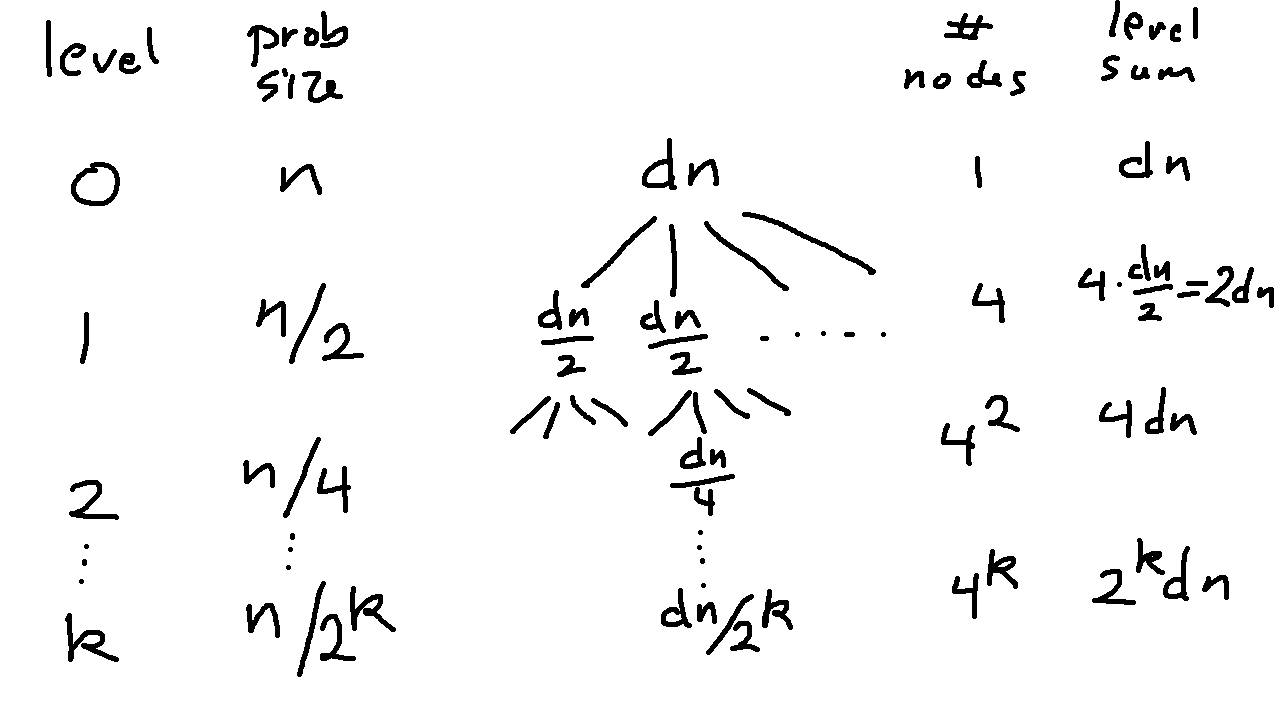 level prob size # nodes level sum
0 n dn 1 dn
1 n/2 dn/2 dn/2 . . . . . 4 4·dn/2=2dn
2 n/4 dn/4 4^2 4dn
⋮ ⋮ ⋮
k n/2^k dn/2^k 4^k 2^k dn